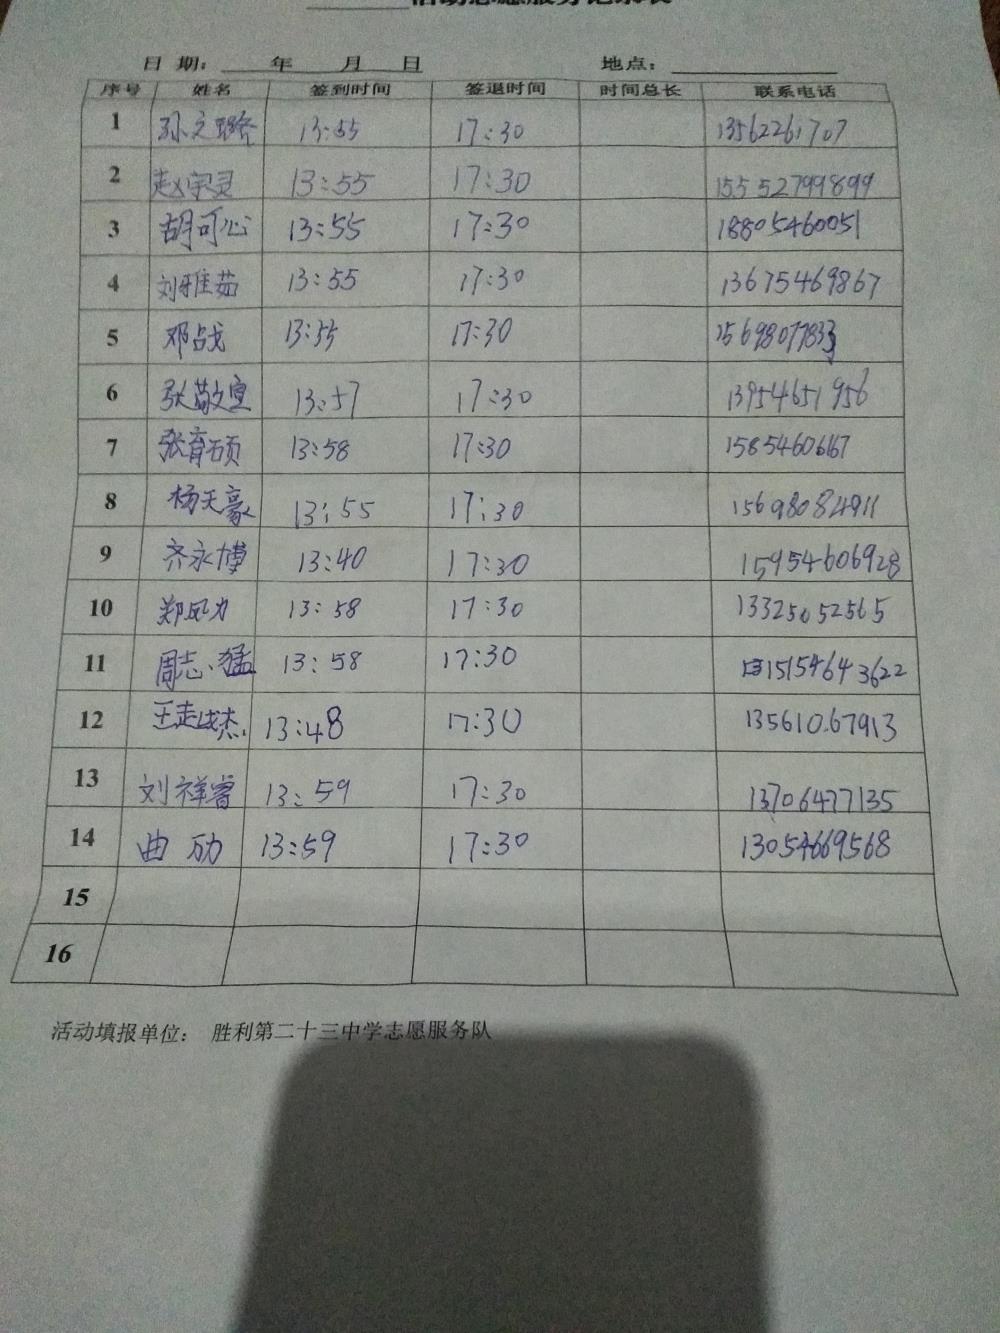 活动志愿服务记录表
日 期： 年 月 日 地点：
序号 姓名 签到时间 签退时间 时间总长 联系电话
1 孙文璐 13:55 17:30 13562261707
2 赵宗灵 13:55 17:30 15552799899
3 胡可心 13:55 17:30 18805460051
4 刘雅茹 13:55 17:30 13675469867
5 邓占戈 13:55 17:30
6 张敬宣 13:57 17:30 13954651956
7 张育硕 13:58 17:30 15854606167
8 杨天豪 13:55 17:30 15698084911
9 齐永博 13:40 17:30 15954606928
10 郑凤力 13:58 17:30 13325052565
11 周志猛 13:58 17:30 15154643622
12 13:48 17:30 13561067913
13 刘祥睿 13:59 17:30 13706477135
14 曲励 13:59 17:30 13054669568
15
16
活动填报单位： 胜利第二十三中学志愿服务队